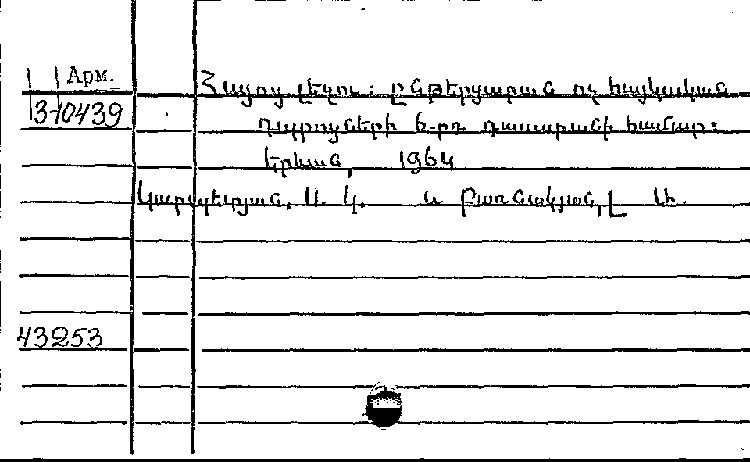 Арм.
Հայոց լեզու: ընթերցարան ոչ հայկական
3-10439
դպրոցների 6-րդ դասարանի համար:
Երևան, 1964
Կարապետյան, Ս. Կ. և Բառնակյան, Լ.
43253